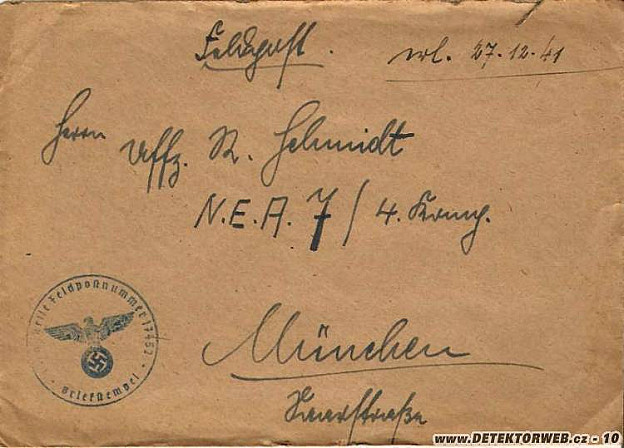 Feldpost. erl. 27.12.41
Herrn Uffz. R. Schmidt
N.E.A. 7 / 4. Komp.
Feldpostnummer
Briefstempel
München
Saarstraße
www.DETEKTORWEB.cz - 10